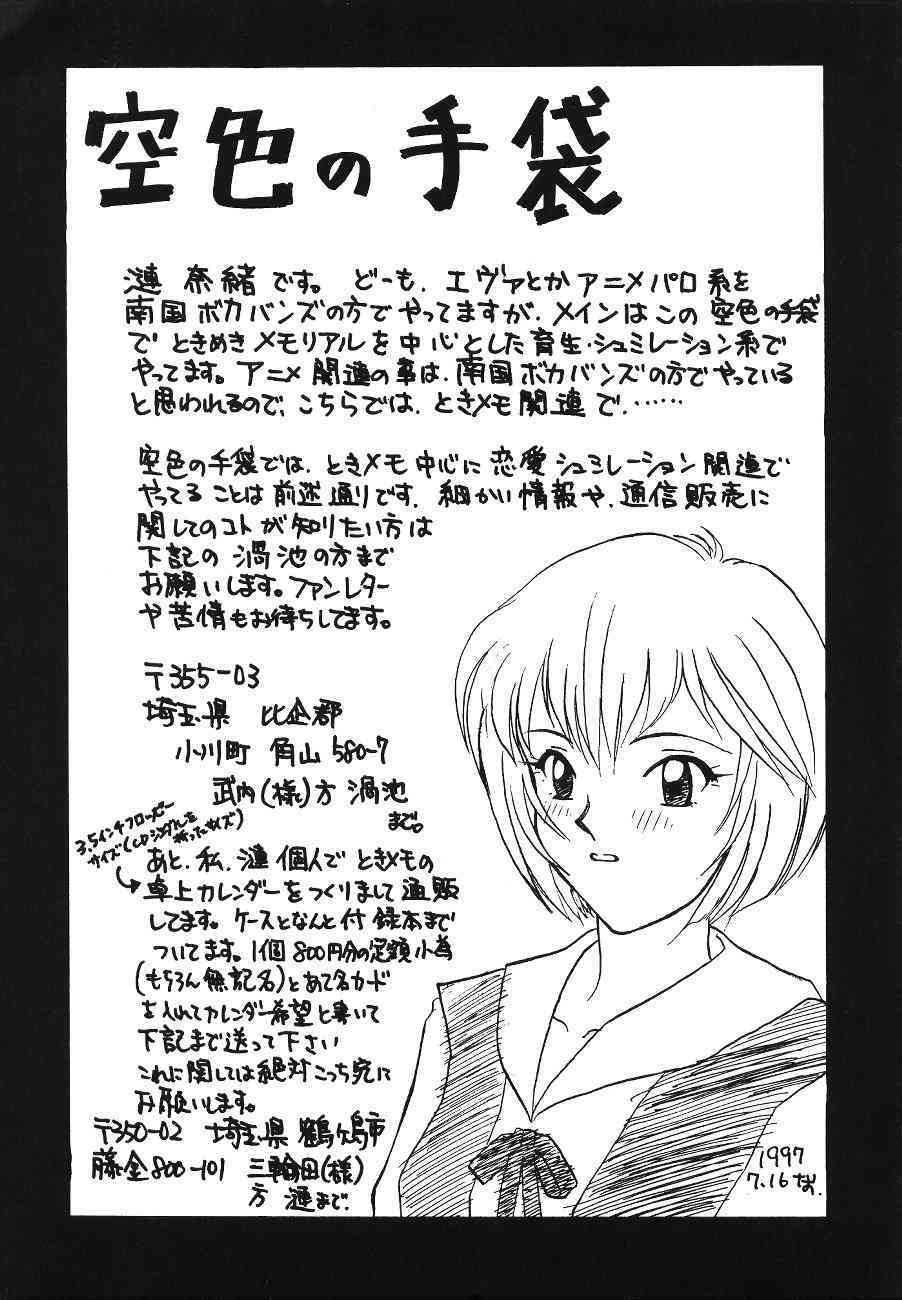 空色の手袋
漣 奈緒です。どーも、エヴァとかアニメパロ系を
南国ボカバンズの方でやってますが、メインはこの空色の手袋
で ときめきメモリアルを中心とした育生・シュミレーション系で
やってます。アニメ関連の事は、南国ボカバンズの方でやっている
と思われるので、こちらでは、ときメモ関連で、……
空色の手袋では、ときメモ中心に恋愛シュミレーション関連で
やってることは前述通りです、細かい情報や、通信販売に
関してのコトが知りたい方は
下記の 渦池の方まで
お願いします。ファンレター
や苦情もお待ちしてます。
〒355-03
埼玉県 比企郡
小川町 角山 580-7
武内(様)方 渦池
まで。
3.5インチフロッピー
サイズ(CDシングルを
折ったサイズ)
あと、私、漣個人で ときメモの
卓上カレンダーをつくりまして通販
してます。ケースとなんと付録本まで
ついてます。1個800円分の定額小為
(もちろん無記名)とあて名カード
を入れてカレンダー希望と書いて
下記まで送って下さい
これに関しては絶対こっち宛に
お願いします。
〒350-02 埼玉県 鶴ヶ島市
藤金800-101 三輪田(様)
方 漣まで.
1997
7.16 なお.